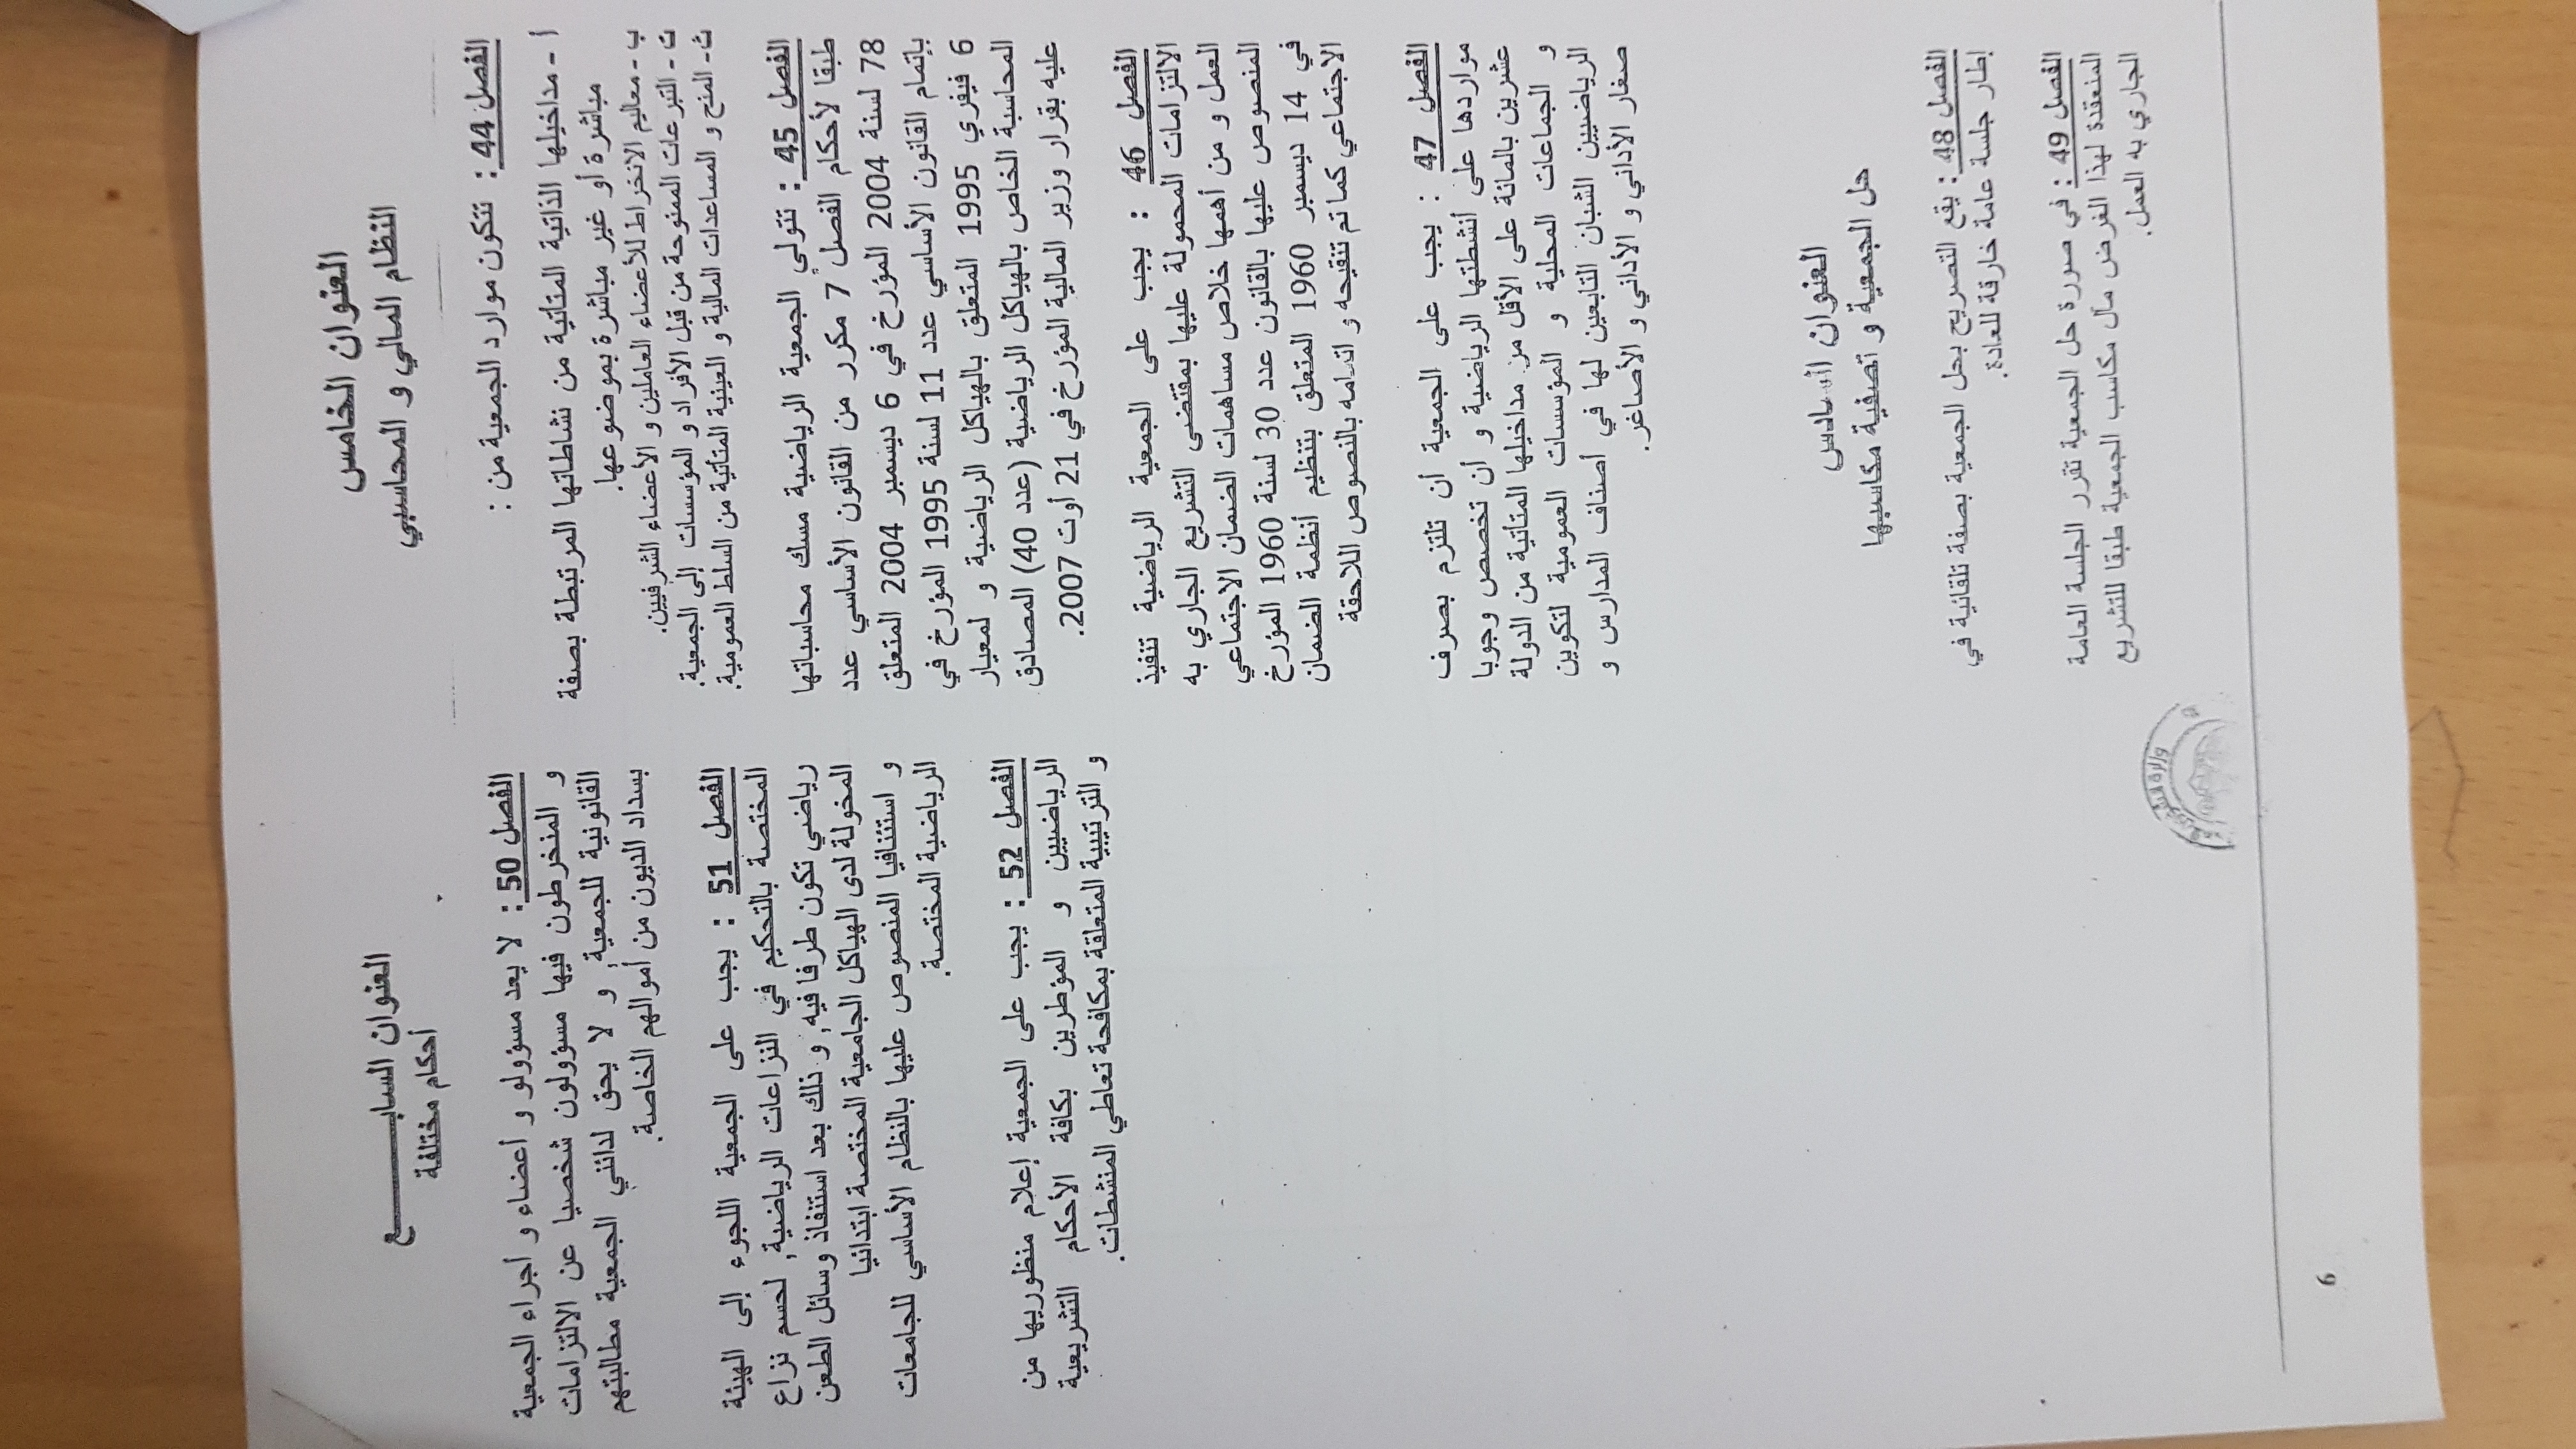 العنوان الخامس
النظام المالي و المحاسبي
الفصل 44 : تتكون موارد الجمعية من :
أ - مداخيلها الذاتية المتأتية من نشاطاتها المرتبطة بصفة
مباشرة أو غير مباشرة بموضوعها.
ب - معاليم الانخراط للأعضاء العاملين و الأعضاء الشرفيين.
ت - التبرعات الممنوحة من قبل الأفراد و المؤسسات إلى الجمعية.
ث- المنح و المساعدات المالية و العينية المتأتية من السلط العمومية.
الفصل 45 : تتولى الجمعية الرياضية مسك محاسباتها
طبقا لأحكام الفصل 7 مكرر من القانون الأساسي عدد
78 لسنة 2004 المؤرخ في 6 ديسمبر 2004 المتعلق
بإتمام القانون الأساسي عدد 11 لسنة 1995 المؤرخ في
6 فيفري 1995 المتعلق بالهياكل الرياضية و لمعيار
المحاسبة الخاص بالهياكل الرياضية (عدد 40) المصادق
عليه بقرار وزير المالية المؤرخ في 21 أوت 2007.
الفصل 46 : يجب على الجمعية الرياضية تنفيذ
الالتزامات المحمولة عليها بمقتضى التشريع الجاري به
العمل و من أهمها خلاص مساهمات الضمان الاجتماعي
المنصوص عليها بالقانون عدد 30 لسنة 1960 المؤرخ
في 14 ديسمبر 1960 المتعلق بتنظيم أنظمة الضمان
الاجتماعي كما تم تنقيحه و اتمامه بالنصوص اللاحقة
الفصل 47 : يجب على الجمعية أن تلتزم بصرف
مواردها على أنشطتها الرياضية و أن تخصص وجوبا
عشرين بالمائة على الأقل من مداخيلها المتأتية من الدولة
و الجماعات المحلية و المؤسسات العمومية لتكوين
الرياضيين الشبان التابعين لها في أصناف المدارس و
صغار الأداني و الأداني و الأصاغر.
العنوان السادس
حل الجمعية و تصفية مكاسبها
الفصل 48 : يقع التصريح بحل الجمعية بصفة تلقائية في
إطار جلسة عامة خارقة للعادة.
الفصل 49 : في صورة حل الجمعية تقرر الجلسة العامة
المنعقدة لهذا الغرض مآل مكاسب الجمعية طبقا للتشريع
الجاري به العمل.
العنوان السابـــــــــع
أحكام مختلفة
الفصل 50 : لا يعد مسؤولو و أعضاء و أجراء الجمعية
و المنخرطون فيها مسؤولون شخصيا عن الالتزامات
القانونية للجمعية, و لا يحق لدائني الجمعية مطالبتهم
بسداد الديون من أموالهم الخاصة.
الفصل 51 : يجب على الجمعية اللجوء إلى الهيئة
المختصة بالتحكيم في النزاعات الرياضية, لحسم نزاع
رياضي تكون طرفا فيه, و ذلك بعد استنفاذ وسائل الطعن
المخولة لدى الهياكل الجامعية المختصة ابتدائيا
و استئنافيا المنصوص عليها بالنظام الأساسي للجامعات
الرياضية المختصة.
الفصل 52 : يجب على الجمعية إعلام منظوريها من
الرياضيين و المؤطرين بكافة الأحكام التشريعية
و الترتيبية المتعلقة بمكافحة تعاطي المنشطات.
6